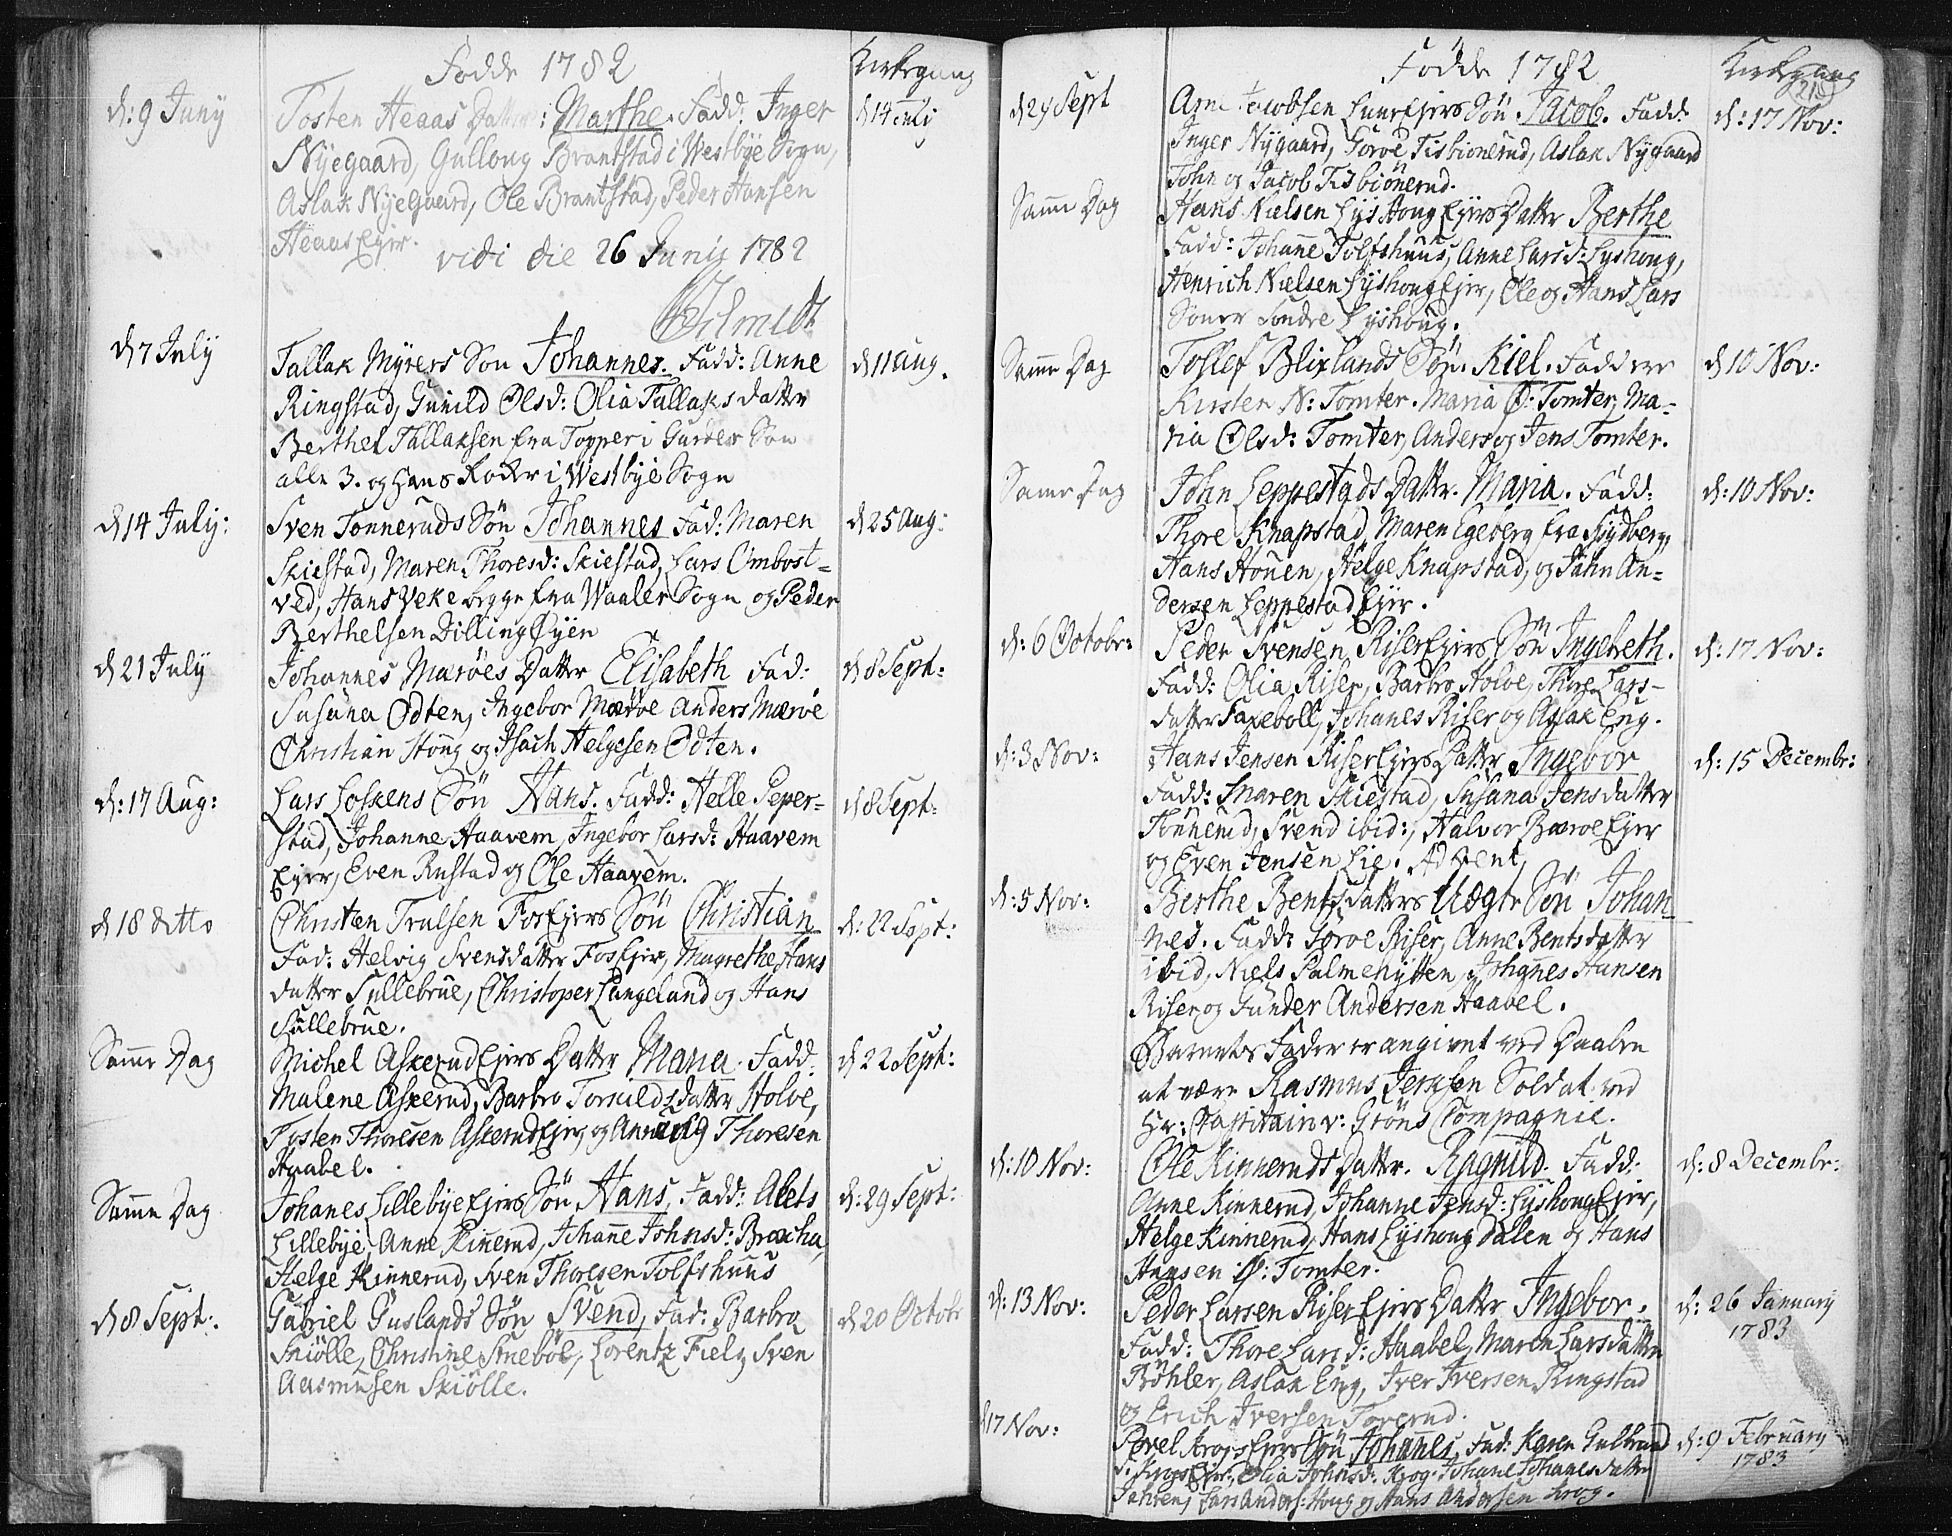 Fødde 1782
Kirkegang
d: 9 Juny
Tosten Heaas Datter: Marthe. Fadd. Inger
d 14 July
Nyegaard, Gullong Brantstad i Westbye Sogn,
Aslak Nyegaard, Ole Brantstad, Peder Hansen
Heaas Ejer.
vidi die 26 Junij 1782
d 7 July
Tallak Myrers Søn Johannes. Fadd: Anne
d 11 Aug.
Ringstad, Gunild Olsd: Olia Tallaksdatter
Berthel Tallaksen fra Topper i Garder Sogn
alle 3. og Hans Koder i Westbye Sogn
d 14 July:
Sven Tonneruds Søn Johannes Fad: Maren
d 25 Aug:
Skiestad, Maren Thoresd: Skiestad, Lars Ombost-
ved, Hans Veke begge fra Waaler Sogn og Peder
Berthelsen Dilling Øyen
d 21 July
Johannes Mærøes Datter Elisabeth Fad:
d 8 Sept:
Susana Odten, Ingebor Mærøe Anders Mærøe
Christian Houg og Isach Helgesen Odten.
d: 17 Aug:
Lars Loskens Søn Hans. Fadd: Helle Peper-
d 8 Sept:
stad, Johanne Haavem, Ingebor Larsd: Haavem
Ejer, Even Rustad og Ole Haavem.
d 18 detto
Christen Trulsen Fos Ejers Søn Christian
d: 22 Sept:
Fad: Helvig Svensdatter Fos Ejer, Magrethe Hans
datter Sullebrue, Christoper Langeland og Hans
Sullebrue.
Samme Dag
Michel Askerud Ejers Datter Maria. Fadd.
d 22 Sept:
Malene Askerud, Barbro Torkildsdatter Holøe,
Tosten Thoresen Askerud Ejer, og Thoresen
Haabel.
Samme Dag
Johanes Lillebye Ejers Søn Hans. Fadd: Alets
d: 29 Sept:
Lillebye, Anne Kinnerud, Johanne Johnsd: Bracha,
Helge Kinnerud, Sven Thoresen Tolfshuus
d 8 Sept:
Gabriel Guslands Søn Svend, Fad: Barbro
d 20 Octobr
Skiölle, Christine Smeböl, Lorentz Fiel og Sven
Aasmusen Skiölle.
Fødde 1782
Kirkegang
d 29 Sept
Arne Jacobsen Ejers Søn Jacob. Fadd:
d: 17 Nov:
Inger Nygaard, Torøe Tisbionerud, Aslak Nygaard
John og Jacob Tisbiönerud.
Samme Dag
Hans Nielsen Lyshoug Ejers Datter Berthe
Fadd: Johanne Tolfshuus, Anne Larsd: Lyshoug,
Henrich Nielsen Lyshoug Ejer, Ole og Hans Lars
Sønner Søndre Lyshoug.
Samme Dag
Tollef Blixlands Søn. Kiel. Faddere
d 10 Nov:
Kirsten N: Tomter. Maria Ø: Tomter, Ma-
ria Olsd: Tomter, Anders og Jens Tomter.
Samme Dag
John Leppestads Datter. Maria. Fadd:
d: 10 Nov:
Thore Knapstad, Maren Egeberg fra Spydberg,
Hans Houen, Helge Knapstad, og John An-
dersen Leppestad Ejer.
d: 6 Octobr:
Peder Svensen Riser Ejers Søn Ingebreth.
d: 17 Nov:
Fadd: Olia Riser, Barbro Holøe, Thore Lars-
datter Faxeboll, Johanes Riser og Aslak Eng.
d: 3 Nov:
Hans Jensen Riser Ejers Datter Ingebor
d: 15 Decembr:
Fadd: Maren Skiestad, Susana Jensdatter
Tonnerud, Svend ibid:, Halvor Bærøe Ejer
og Even Jensen Lie. Advent,
d: 5 Nov:
Berthe Bentsdatters Uægte Søn Johan
nes. Fadd: Torøe Riser, Anne Bentsdatter
ibid, Niels Palmehytten, Johannes Hansen
Riser og Gunder Andersen Haabel.
Barnets Fader er angivet ved Daaben
at være Rasmus Jensen Soldat ved
Hr: Capitain v: Gröns Compagnie.
d: 10 Nov:
Ole Kinneruds Datter. Ragnild. Fadd:
d: 8 Decembr:
Anne Kinnerud, Johanne Jensd: Lyshoug Ejer,
Helge Kinnerud, Hans Lyshoug Dalen og Hans
Hansen Ø: Tomter.
d: 13 Nov:
Peder Larsen Riser Ejers Datter Ingebor.
d: 26 January
1783
Fadd: Thore Larsd: Haabel, Maren Larsdatter
Böhler, Aslak Eng, Iver Iversen Ringstad
og Erich Iversen Toverud.
d 17 Nov:
Povel Krogs Ejers Søn Johannes. Fad: Karen Gulbrand
d: 9 February
1783
d: Krogs Ejer, Olia Johnsd: Krog. Johane Johanesdatter
Lars Anders: Houg og Hans Andersen Krog.